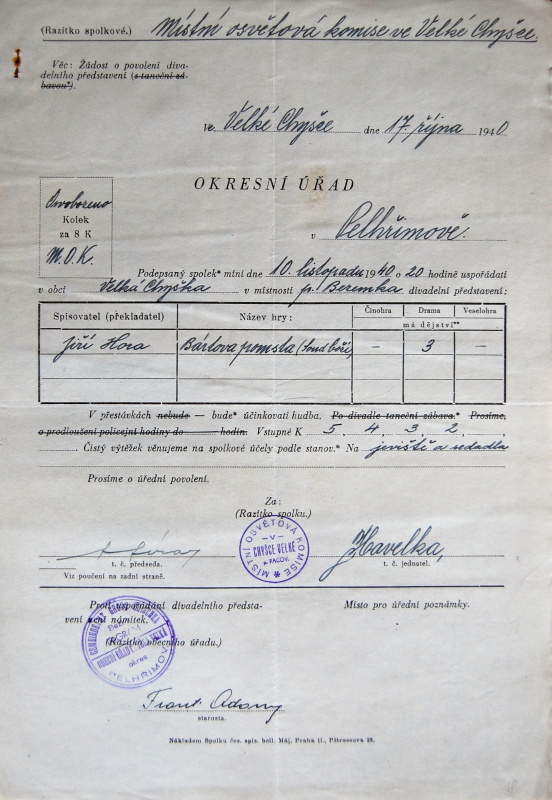 (Razítko spolkové.) Místní osvětová komise ve Velké Chyšce.
Věc: Žádost o povolení diva-
delního představení (s taneční zá-
bavou*).
Ve Velké Chyšce dne 17. října 1940.
OKRESNÍ ÚŘAD
Osvobozeno
Kolek
za 8 K
M.O.K.
v Pelhřimově.
Podepsaný spolek* míní dne 10. listopadu 1940 o 20 hodině uspořádati
v obci Velká Chyška v místnosti p. Beremka divadelní představení:
Spisovatel (překladatel) Název hry: Činohra Drama Veselohra
má dějství**
Jiří Hora Bártova pomsta (Soud boží) — 3 —
V přestávkách nebude — bude* účinkovati hudba. Po divadle taneční zábava.* Prosíme,
o prodloužení policejní hodiny do hodin. Vstupné K 5, 4, 3, 2,
Čistý výtěžek věnujeme na spolkové účely podle stanov.* Na jeviště a sedadla
Prosíme o úřední povolení.
Za:
(Razítko spolku.)
MÍSTNÍ OSVĚTOVÁ KOMISE
V
CHYŠCE VELKÉ
P. PACOV.
Havelka,
t. č. předseda. t. č. jednatel.
Viz poučení na zadní straně.
Proti uspořádání divadelního předsta-
vení není námitek.
Místo pro úřední poznámky.
(Razítko obecního úřadu.)
okres
PELHŘIMOV
Frant. Adam
starosta.
Nákladem Spolku čes. spis. bell. Máj, Praha II., Pštrossova 28.